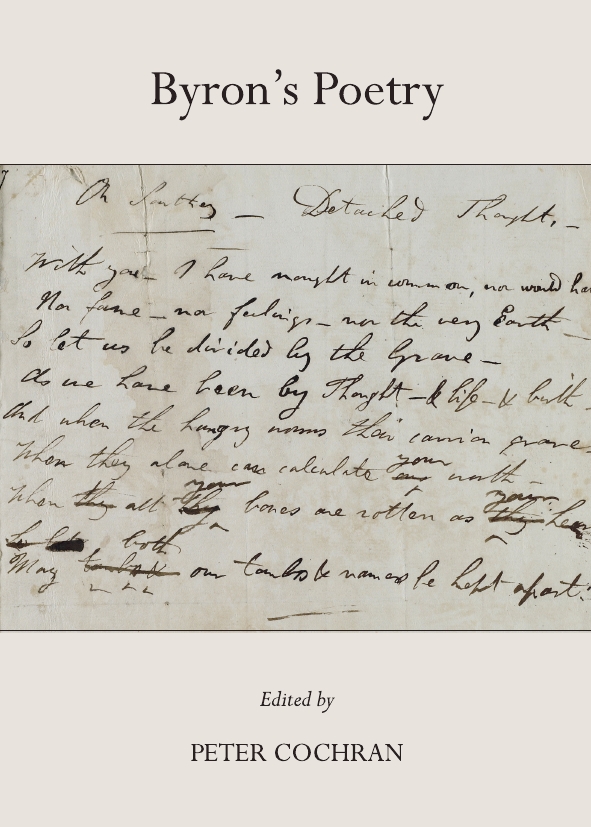 Byron's Poetry
On Southey — Detached Thought, —
With you — I have nought in common, nor would ha
Nor fame — nor feelings — nor the very Earth —
So let us be divided by the Grave —
As we have been by Thought — & life — & birth —
And when the hungry worms their carrion crave
When they alone can calculate your worth —
your
When all bones are rotten as
your
both
May our tombs & names be kept apart!
Edited by
PETER COCHRAN